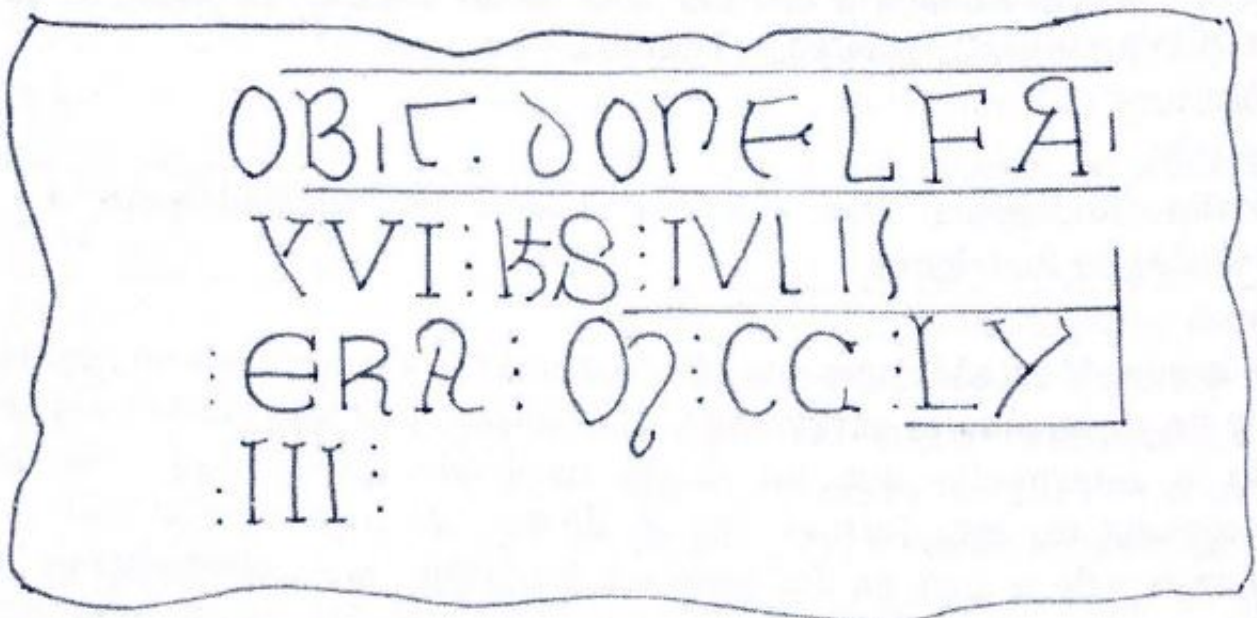 OBIT. DONELFAI
XVI : KS : IVLIS
: ERA : M : CC : LX
: III :